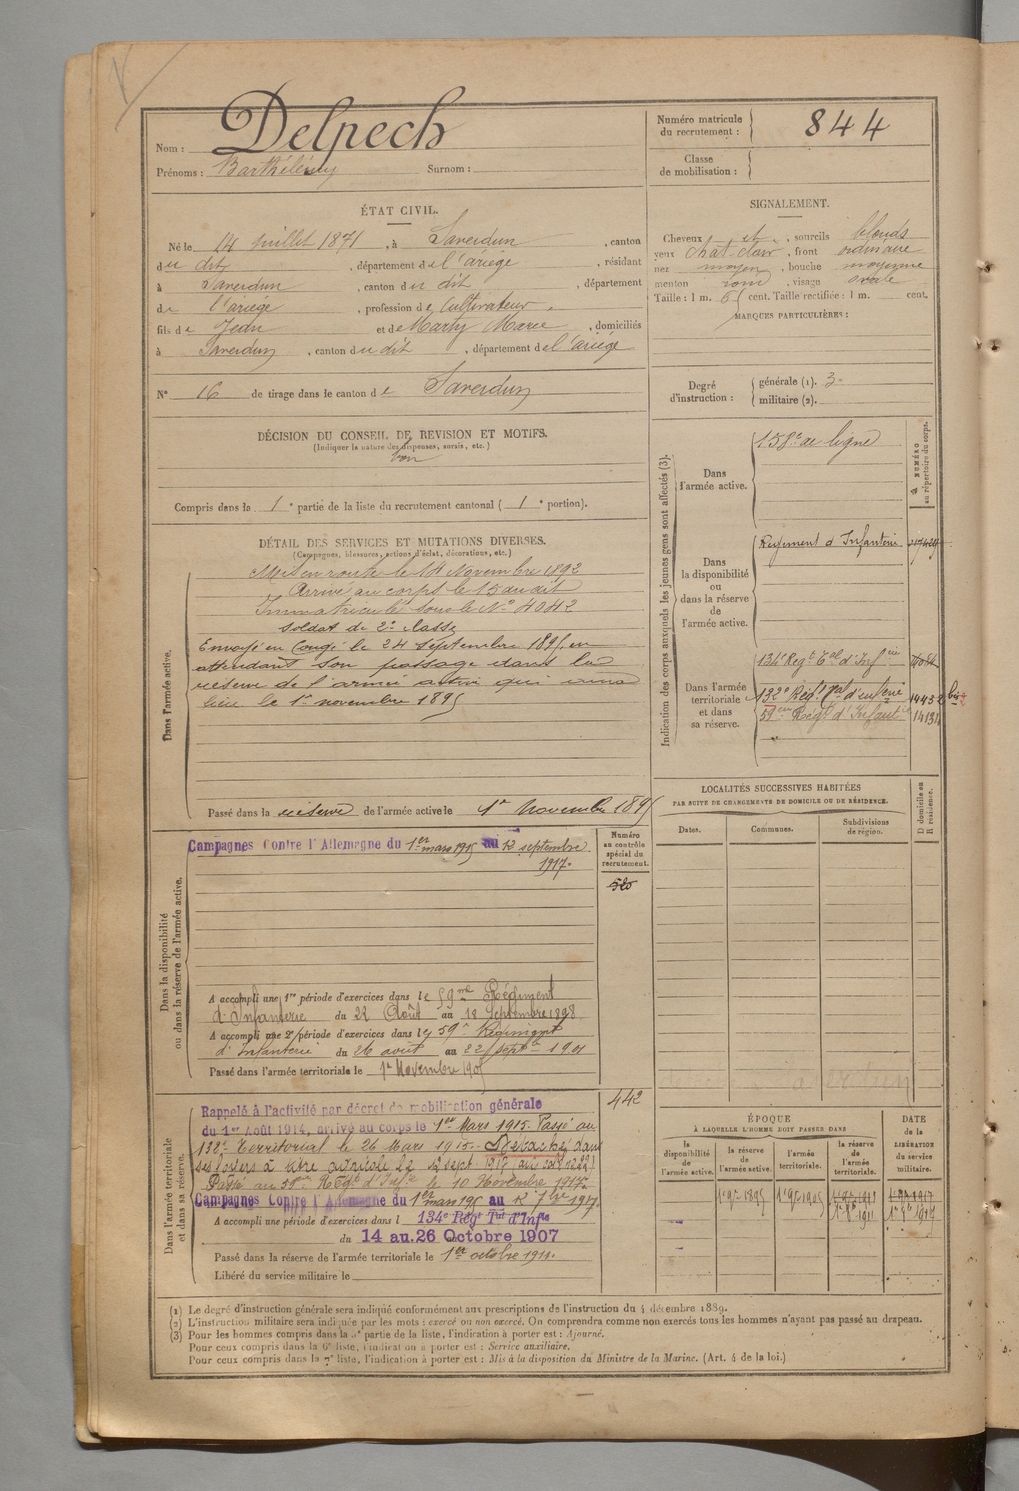 Nom : Delpech
Prénoms : Barthélémy Surnom :
Numéro matricule
du recrutement : 844
Classe
de mobilisation :
ÉTAT CIVIL.
Né le 14 juillet 1871, à Saverdun, canton
du dit, département de l'ariège, résidant
à Saverdun, canton du dit, département
de l'ariége, profession de Cultivateur,
fils de Jean et de Marty Marie, domiciliés
à Saverdun, canton du dit, département de l'ariége
N° 16 de tirage dans le canton de Saverdun
SIGNALEMENT.
Cheveux et, sourcils blonds
yeux chat. clair, front ordinaire
nez moyen, bouche moyenne
menton rond, visage ovale
Taille : 1 m. 65 cent. Taille rectifiée : 1 m. cent.
MARQUES PARTICULIÈRES :
Degré
d'instruction :
générale (1). 3.
militaire (2).
DÉCISION DU CONSEIL DE REVISION ET MOTIFS.
(Indiquer la nature des dispenses, sursis, etc.)
bon
Compris dans la 1e partie de la liste du recrutement cantonal ( 1e portion).
DÉTAIL DES SERVICES ET MUTATIONS DIVERSES.
(Campagnes, blessures, actions d'éclat, décorations, etc.)
Dans l'armée active.
Mis en route le 14 Novembre 1892
Arrivé au corps le 15 du dit
Immatriculé sous le N° 4042
soldat de 2e classe
Envoyé en Congé le 24 septembre 1895, en
attendant son passage dans la
réserve de l'armée active qui aura
lieu le 1er novembre 1895
Passé dans la réserve de l'armée active le 1er Novembre 1895
Indication des corps auxquels les jeunes gens sont affectés (3).
NUMÉRO
au répertoire du corps.
Dans
l'armée active.
158e de ligne
Dans
la disponibilité
ou
dans la réserve
de
l'armée active.
Régiment d'Infanterie
Dans l'armée
territoriale
et dans
sa réserve.
134e Régt Tal d'Infie
132e Régt Tal d'infrie 14432 bis
59em Régt d'Infantie
LOCALITÉS SUCCESSIVES HABITÉES
PAR SUITE DE CHANGEMENTS DE DOMICILE OU DE RÉSIDENCE.
Dates. Communes. Subdivisions
de région.
D domicile ou
R résidence.
Dans la disponibilité
ou dans la réserve de l'armée active.
Campagnes Contre l'Allemagne du 1er mars 1915 au 12 septembre
1917.
Numéro
au contrôle
spécial du
recrutement.
A accompli une 1re période d'exercices dans le 59me Régiment
d'Infanterie du 22 Août au 18 Septembre 1898
A accompli une 2e période d'exercices dans le 59e Régiment
d'Infanterie du 26 août au 22 septbre 1901
Passé dans l'armée territoriale le 1er Novembre 1905
Dans l'armée territoriale
et dans sa réserve.
442
Rappelé à l'activité par décret de mobilisation générale
du 1er Août 1914, arrivé au corps le 1er Mars 1915. Passé au
132e Territorial le 26 Mars 1915. Détaché dans
ses foyers à titre agricole le 12 sept. 1917
Passé au 59me Régt d'Infie le 10 Novembre 1917.
Campagnes Contre l'Allemagne du 1er mars 1915 au 12 7bre 1917.
A accompli une période d'exercices dans l 134e Régt Tal d'Infie
du 14 au 26 Octobre 1907
Passé dans la réserve de l'armée territoriale le 1er octobre 1911.
Libéré du service militaire le
ÉPOQUE
À LAQUELLE L'HOMME DOIT PASSER DANS
la
disponibilité
de
l'armée active.
la réserve
de
l'armée active.
l'armée
territoriale.
la réserve
de
l'armée
territoriale.
DATE
de la
LIBÉRATION
du service
militaire.
1er 9bre 1895 1er 9bre 1905
1er 8bre 1911 1er 8bre 1917
(1) Le degré d'instruction générale sera indiqué conformément aux prescriptions de l'instruction du 4 décembre 1889.
(2) L'instruction militaire sera indiquée par les mots : exercé ou non exercé. On comprendra comme non exercés tous les hommes n'ayant pas passé au drapeau.
(3) Pour les hommes compris dans la 5e partie de la liste, l'indication à porter est : Ajourné.
Pour ceux compris dans la 6e liste, l'indication à porter est : Service auxiliaire.
Pour ceux compris dans la 7e liste, l'indication à porter est : Mis à la disposition du Ministre de la Marine. (Art. 4 de la loi.)